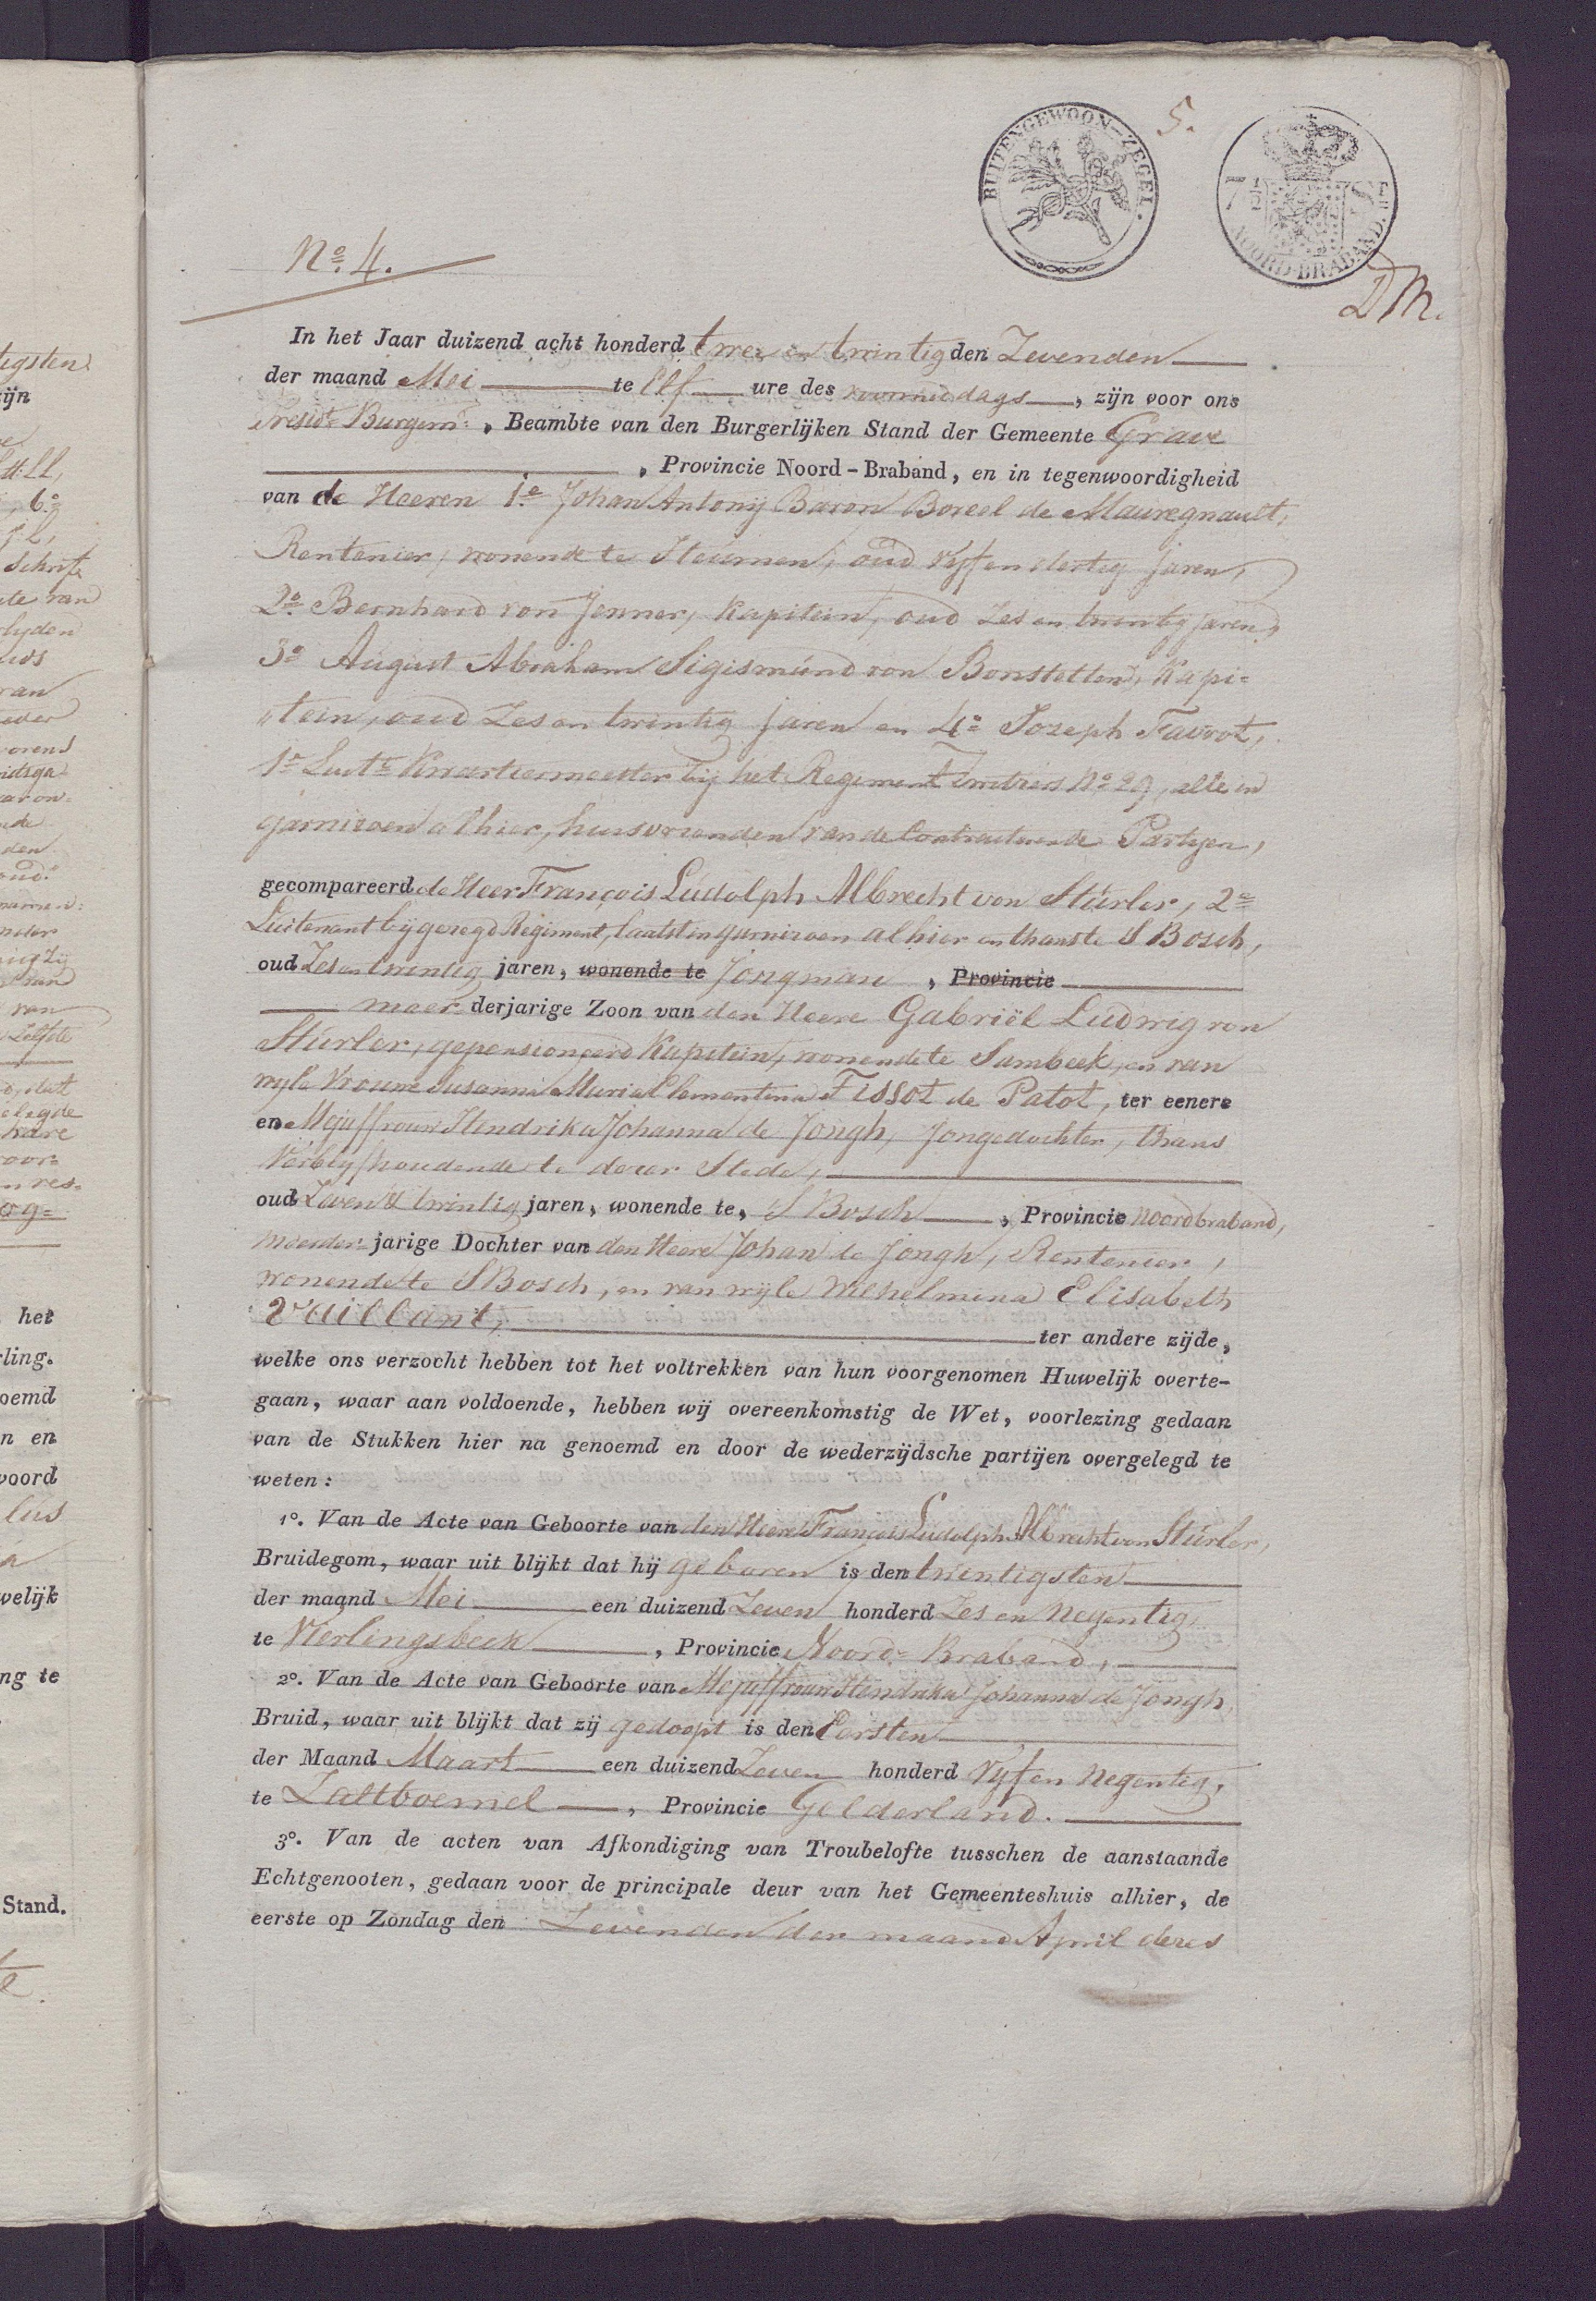 5.
BUITENGEWOON-ZEGEL.
7½ St.
NOORD-BRABAND.
DM.
No. 4.
In het Jaar duizend acht honderd twee en twintig den Zevenden
der maand Mei te Elf ure des voormiddags, zijn voor ons
Presidt. Burgemr., Beambte van den Burgerlijken Stand der Gemeente Grave
, Provincie Noord-Braband, en in tegenwoordigheid
van de Heeren 1e Johan Antonij Baron Boreel de Mauregnault,
Rentenier, wonende te Heumen, oud Vyf en dertig jaren,
2o Bernhard von Jenner, Kapitein, oud Zes en twintig jaren,
3o August Abraham Sigismund von Bonstetten, Kapi=
"tein, oud Zes en twintig jaren en 4o Jozeph Favrot,
1e Luitt. Kwartiermeester bij het Regiment Zwitsers No. 29, alle in
garnizoen alhier, huisvrienden van de Contracteerende Partyen,
gecompareerd de Heer François Ludolph Albrecht von Stúrler, 2e
Luitenant bij gezegd Regiment, laatst in garnizoen alhier en thans te S Bosch,
oud Zes en twintig jaren, wonende te Jongman, Provincie
meerderjarige Zoon van den Heere Gabriël Ludwig von
Stúrler, gepensioneerd Kapitein, wonende te Sambeek, en van
wyle Vrouwe Susanna Maria Clementina Tissot de Patot, ter eenere
en Mejuffrouw Hendrika Johanna de Jongh, Jongedochter, thans
Verblyfhoudende te dezer Stede,
oud Zeven & twintig jaren, wonende te, S Bosch, Provincie Noordbraband,
meerder-jarige Dochter van den Heere Johan de Jongh, Rentenier,
wonende te S Bosch, en van wyle Wilhelmina Elisabeth
Vaillant, ter andere zijde,
welke ons verzocht hebben tot het voltrekken van hun voorgenomen Huwelijk overte-
gaan, waar aan voldoende, hebben wij overeenkomstig de Wet, voorlezing gedaan
van de Stukken hier na genoemd en door de wederzijdsche partijen overgelegd te
weten:
1o. Van de Acte van Geboorte van den Heere François Ludolph Albrecht von Stúrler,
Bruidegom, waar uit blijkt dat hij geboren is den twintigsten
der maand Mei een duizend Zeven honderd Zes en Negentig
te Vierlingsbeek, Provincie Noord-Braband,
2o. Van de Acte van Geboorte van Mejuffrouw Hendrika Johanna de Jongh,
Bruid, waar uit blijkt dat zij gedoopt is den Eersten
der Maand Maart een duizend Zeven honderd Vyf en Negentig,
te Zaltboemel, Provincie Gelderland.
3o. Van de acten van Afkondiging van Troubelofte tusschen de aanstaande
Echtgenooten, gedaan voor de principale deur van het Gemeenteshuis alhier, de
eerste op Zondag den Zevenden der maand April dezes